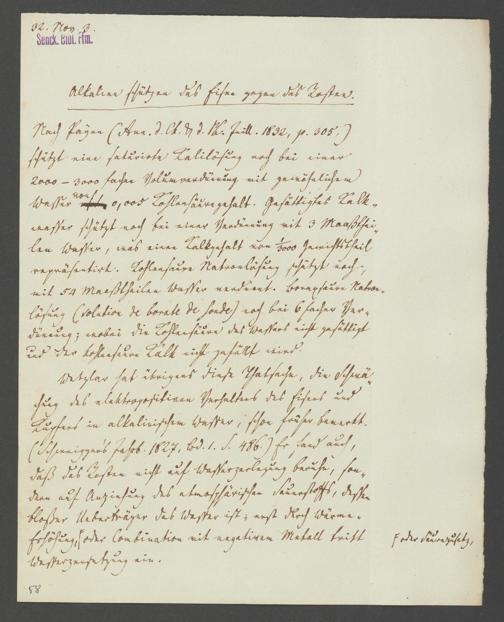 32. Nov. 3.
Senck. Bibl. Ffm.
Alkalien schützen das Eisen gegen das Rosten.
Nach Payen (Ann. d. Ch. & d. Ph. Juill. 1832, p. 305,)
schützt eine saturirte Kalilösung noch bei einer
2000 – 3000 fachen Volumverdünnung mit gewöhnlichem
Wasser von 0,005 Kohlensäuregehalt. Gesättigtes Kalk-
wasser schützt noch bei einer Verdünnung mit 3 Maaßthei-
len Wasser, was einen Kalkgehalt von 1/3000 Gewichtstheil
repräsentirt. Kohlensaure Natronlösung schützt noch,
mit 54 Maaßtheilen Wasser verdünnt. Boraxsaure Natron-
lösung (solution de borate de soude) noch bei 6 facher Ver-
dünnung; wobei die Kohlensäure des Wassers nicht gesättigt
und der kohlensaure Kalk nicht gefällt wird.
Wetzlar hat übrigens diese Thatsache, die Schwä-
chung des elektropositiven Verhaltens des Eisens und
Kupfers in alkalinischem Wasser, schon früher bemerkt.
(Schweiggers Jahrb. 1827, Bd. 1. S. 486.) Er fand auch,
daß das Rosten nicht auf Wasserzerlegung beruhe, son-
dern auf Anziehung des atmosphärischen Sauerstoffs, dessen
bloßer Ueberträger das Wasser ist; erst durch Wärme-
Erhöhung, oder Combination mit negativem Metall tritt
Wasserzersetzung ein.
oder Säurezusatz,
58